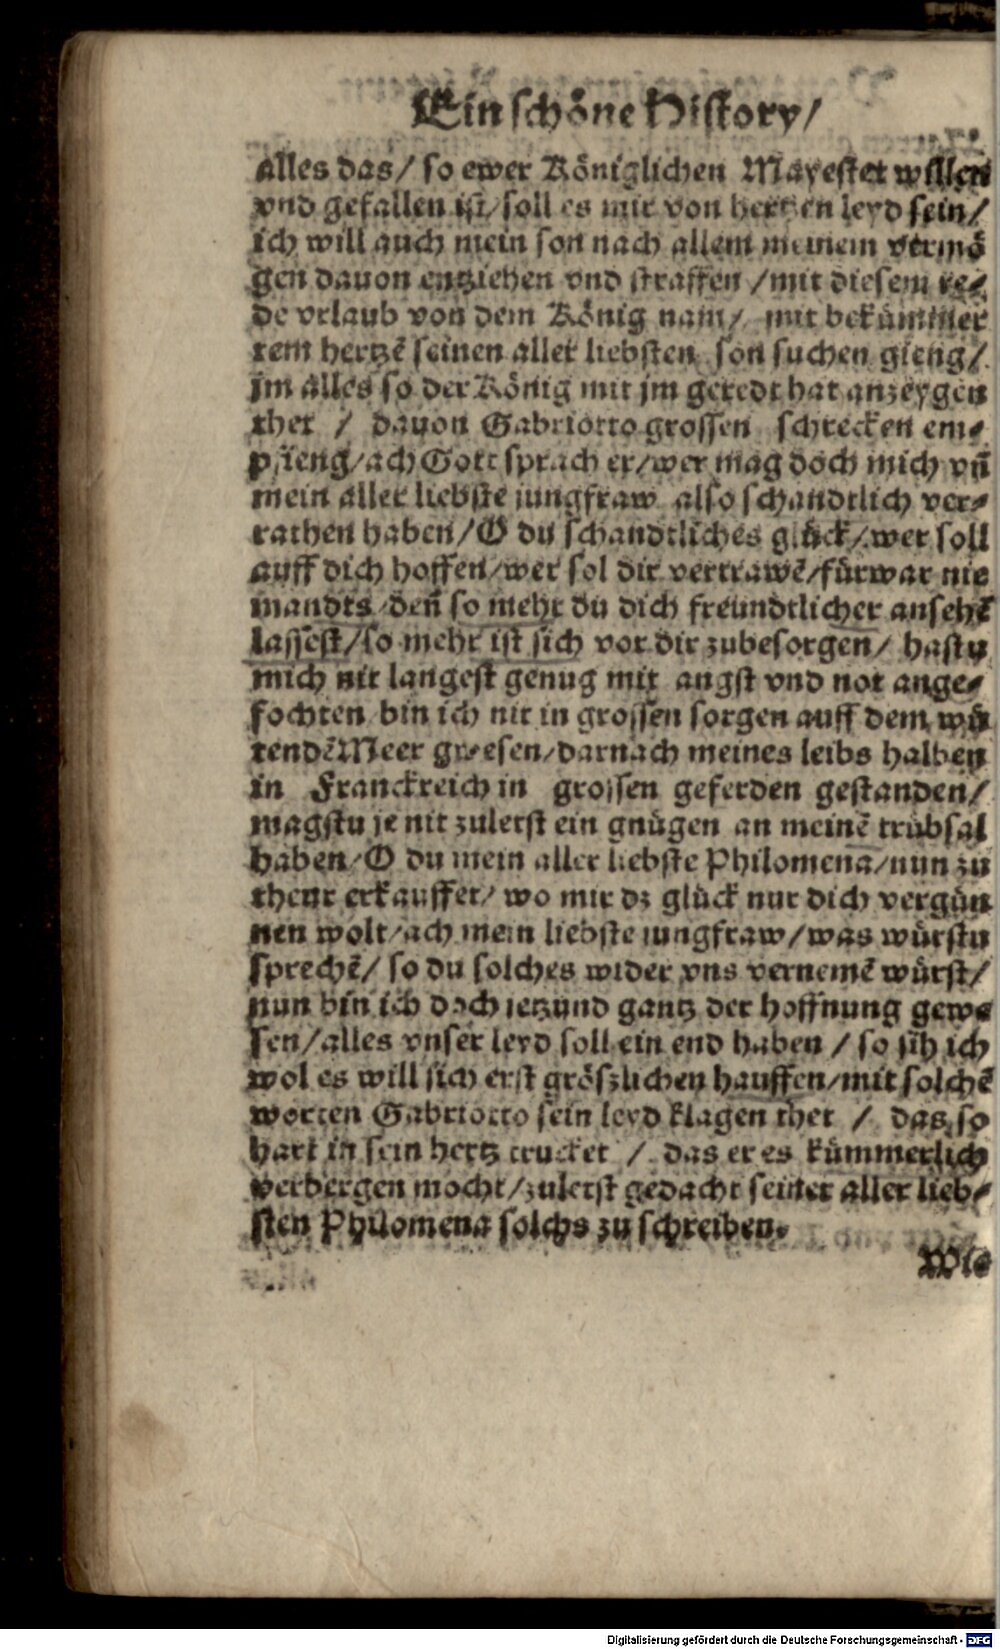 Ein schöne History/
alles das/ so ewer Königlichen Mayestet willen
vnd gefallen ist/ soll es mir von hertzen leyd sein/
ich will auch mein son nach allem meinem vermö
gen dauon entziehen vnd straffen / mit diesem re⸗
de vrlaub von dem König nam/ mit bekümmer
tem hertzē seinen aller liebsten son suchen gieng/
jm alles so der König mit jm geredt hat anzeygen
thet / dauon Gabriotto grossen schrecken em⸗
pfieng/ ach Gott sprach er/ wer mag doch mich vñ
mein aller liebste jungfraw also schandtlich ver⸗
rathen haben/ O du schandtliches glück/ wer soll
auff dich hoffen/ wer sol dir vertrawē/ fürwar nie
mandts/ deñ so mehr du dich freundtlicher ansehē
lassest/ so mehr ist sich vor dir zubesorgen/ hastu
mich nit langest genug mit angst vnd not ange⸗
fochten/ bin ich nit in grossen sorgen auff dem wü
tendē Meer gwesen/ darnach meines leibs halben
in Franckreich in grossen geferden gestanden/
magstu je nit zuletst ein gnügen an meinē trübsal
haben/ O du mein aller liebste Philomena/ nun zu
theur erkauffet/ wo mir dz glück nur dich vergün
nen wolt/ ach mein liebste jungfraw/ was würstu
sprechē/ so du solches wider vns vernemē würst/
nun bin ich doch jetzund gantz der hoffnung gewe
sen/ alles vnser leyd soll ein end haben / so sih ich
wol es will sich erst gröszlichen hauffen/ mit solchē
worten Gabriotto sein leyd klagen thet / das so
hart in sein hertz trucket / das er es kümmerlich
verbergen mocht/ zuletst gedacht seiner aller lieb⸗
sten Philomena solchs zu schreiben.
Wie
Digitalisierung gefördert durch die Deutsche Forschungsgemeinschaft - DFG